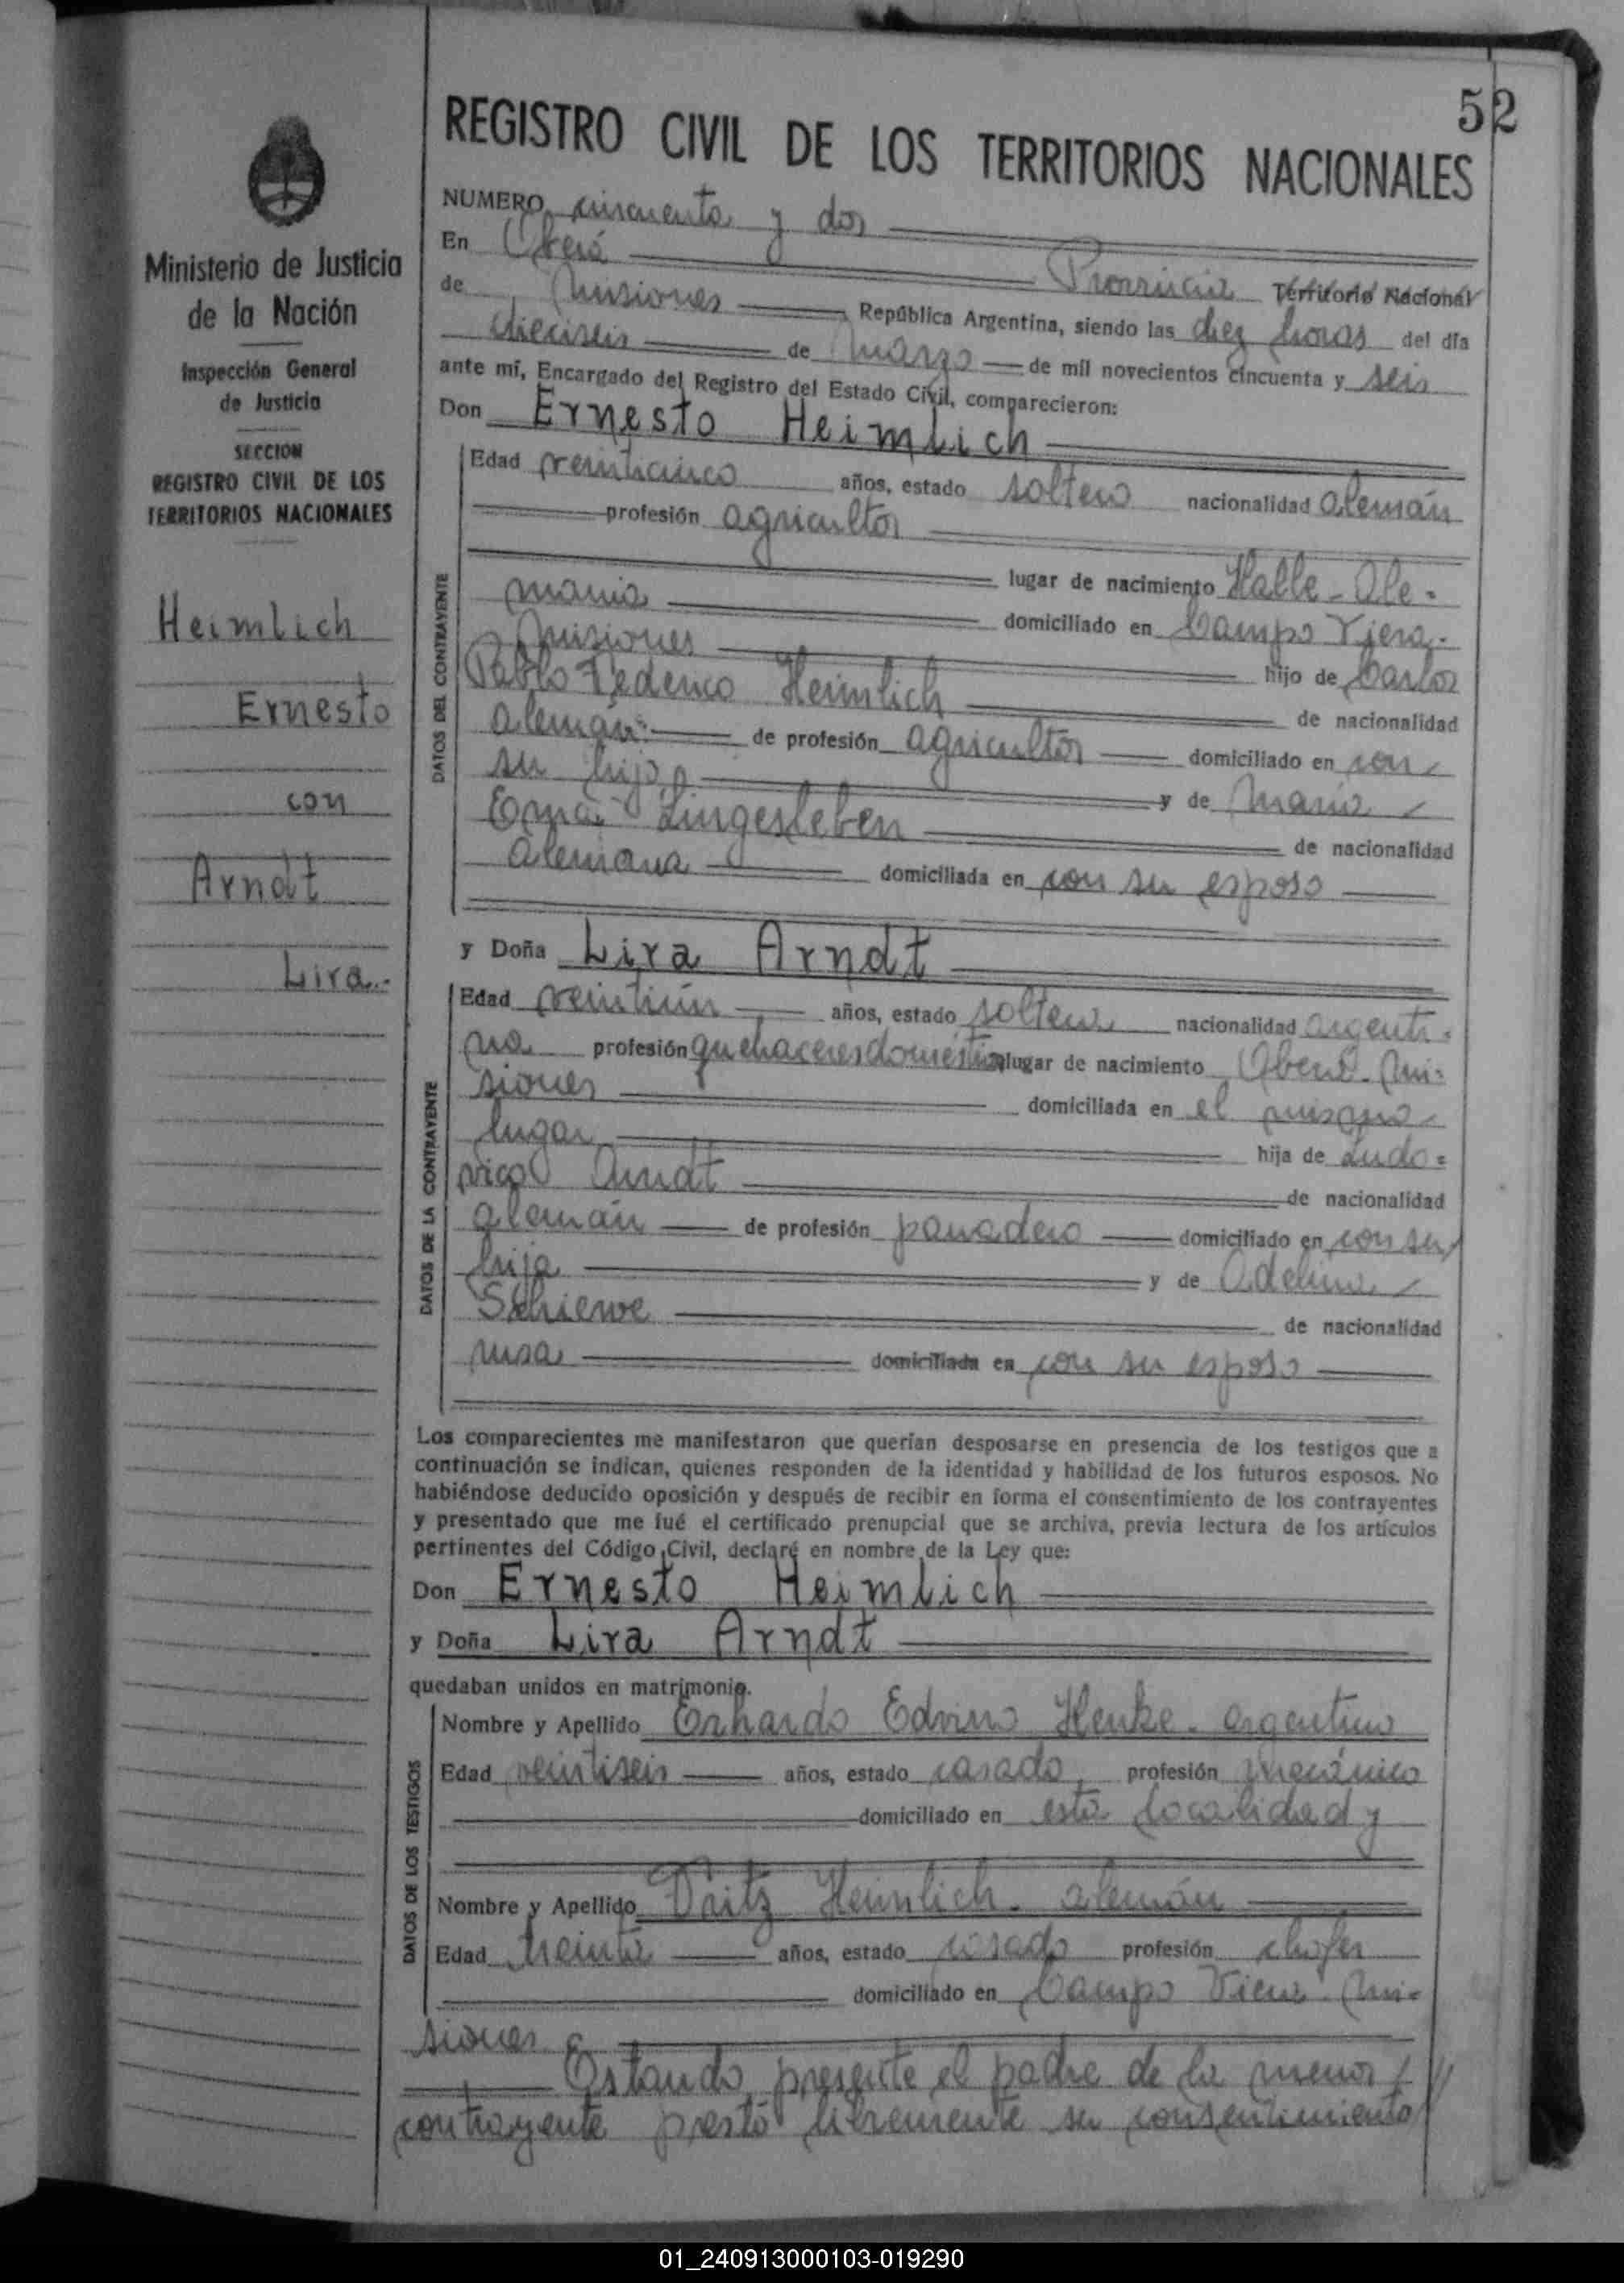 52
REGISTRO CIVIL DE LOS TERRITORIOS NACIONALES
Ministerio de Justicia
de la Nación
Inspección General
de Justicia
SECCION
REGISTRO CIVIL DE LOS
TERRITORIOS NACIONALES
Heimlich
Ernesto
con
Arndt
Lira.
NUMERO cincuenta y dos
En Oberá Provincia Territorio Nacional
de Misiones República Argentina, siendo las diez horas del día
dieciseis de marzo de mil novecientos cincuenta y seis
ante mí, Encargado del Registro del Estado Civil, comparecieron:
Don Ernesto Heimlich
DATOS DEL CONTRAYENTE
Edad veinticinco años, estado soltero nacionalidad alemán
profesión agricultor
lugar de nacimiento Halle - Ale-
mania domiciliado en Campo Viera-
Misiones hijo de Carlos
Pablo Federico Heimlich de nacionalidad
alemán de profesión agricultor domiciliado en con
su hijo y de María
Erna Lingesleben de nacionalidad
alemana domiciliada en con su esposo
y Doña Lira Arndt
DATOS DE LA CONTRAYENTE
Edad veintiún años, estado soltera nacionalidad argenti-
na profesión quehaceres domésticos lugar de nacimiento Oberá - Mi-
siones domiciliada en el mismo
lugar hija de Ludo=
vico Arndt de nacionalidad
alemán de profesión panadero domiciliado en con su
hija y de Adelina
Schiewe de nacionalidad
rusa domiciliada en con su esposo
Los comparecientes me manifestaron que querían desposarse en presencia de los testigos que a
continuación se indican, quienes responden de la identidad y habilidad de los futuros esposos. No
habiéndose deducido oposición y después de recibir en forma el consentimiento de los contrayentes
y presentado que me fué el certificado prenupcial que se archiva, previa lectura de los artículos
pertinentes del Código Civil, declaré en nombre de la Ley que:
Don Ernesto Heimlich
y Doña Lira Arndt
quedaban unidos en matrimonio.
DATOS DE LOS TESTIGOS
Nombre y Apellido Erhardo Edvino Henke - argentino
Edad veintiseis años, estado casado profesión mecánico
domiciliado en esta localidad y
Nombre y Apellido Fritz Heimlich - alemán
Edad treinta años, estado casado profesión chofer
domiciliado en Campo Viera Mi-
siones.
Estando presente el padre de la menor
contrayente prestó libremente su consentimiento
01_240913000103-019290